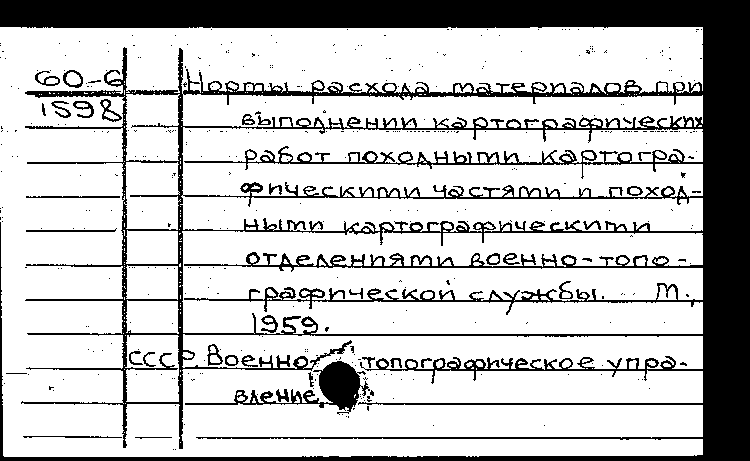 60-6 Нормы расхода материалов при
1598
выполнении картографических
работ походными картогра-
фическими частями и поход-
ными картографическими
отделениями военно-топо-
графической службы. М.,
1959.
СССР. Военно-топографическое упра-
вление.